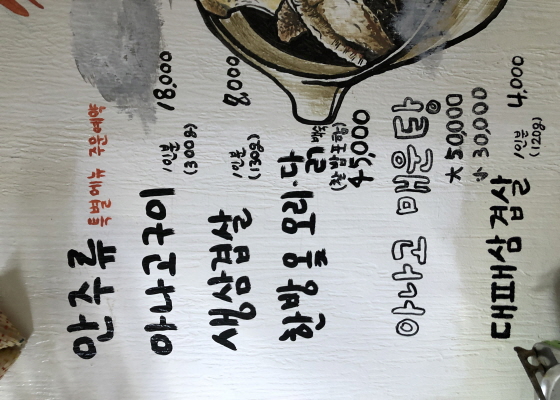 안주류 특별메뉴 주문예약
아나고구이 1인분 (300g) 18,000
생삼겹살 1인분 (130g) 8,000
한방 오리.닭 백숙 (찰밥포함) 45,000
아나고 매운탕 大 50,000
小 30,000
대패삼겹살 1인분 (120g) 4,000